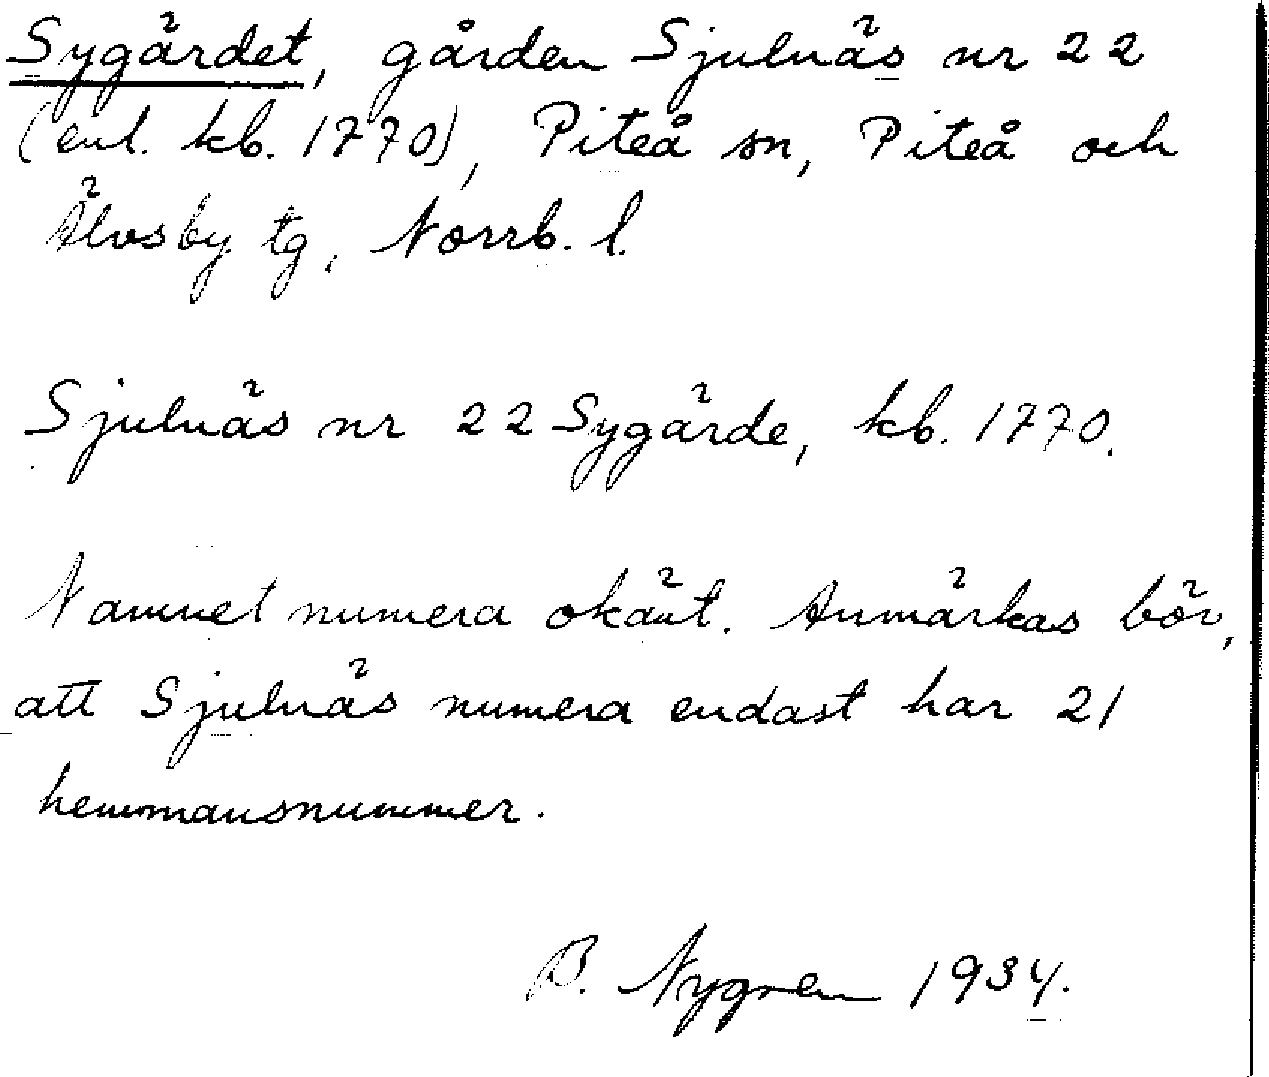 Sygärdet, gården Sjulnäs nr 22
(enl. kb. 1770), Piteå sn, Piteå och
Älvsby tg, Norrb. l.
Sjulnäs nr 22 Sygärde, kb. 1770.
Namnet numera okänt. Anmärkas bör,
att Sjulnäs numera endast har 21
hemmansnummer.
B. Nygren 1934.